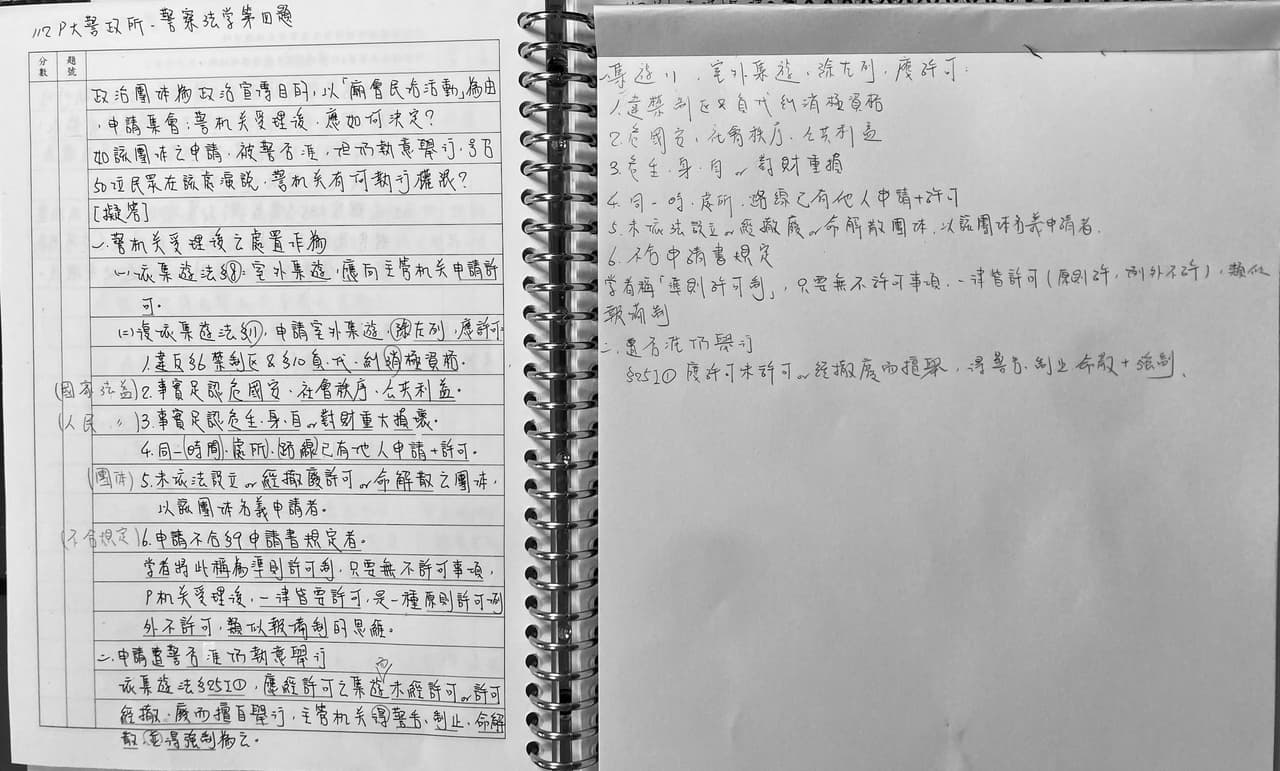 112 P大警政所-警察法学第四題
分數
題號
政治團体為政治宣導目的,以「廟會民俗活動」為由
,申請集會;警机关受理後,應如何決定?
如該團体之申請,被警否准,但仍執意舉行,号召
50位民眾在該處演說,警机关有何執行權限?
[擬答]
一、警机关受理後之處置作為
(一)依集遊法§8:室外集遊,應向主管机关申請許
可。
(二)復依集遊法§11,申請室外集遊,除左列,應許可:
1.違反§6禁制区&§10負、代、糾消極資格
(國家法益)2.事實足認危國安、社會秩序、公共利益。
(人民〃)3.事實足認危生、身、自or對財重大損壞。
4.同一(時間、處所)、路線已有他人申請+許可。
(團体)5.未依法設立or經撤廢許可or命解散之團体,
以該團体名義申請者。
(不合規定)6.申請不合§9申請書規定者。
學者將此稱為準則許可制,只要無不許可事項,
P机关受理後,一律皆要許可,是一種原則許可例
外不許可,類似報備制的思維。
二、申請遭警否准仍執意舉行
依集遊法§25I①,應經許可之集遊而未經許可or許可
經撤、廢而擅自舉行,主管机关得警告、制止、命解
散,並得強制為之。
一、集遊11、室外集遊,除左列,應許可:
1.違禁制区&負代糾消極資格
2.危國安、社會秩序、公共利益
3.危生、身、自or對財重損
4.同一時、處所、路線已有他人申請+許可
5.未依法設立or經撤廢or命解散團体,以該團体名義申請者.
6.不合申請書規定
學者稱「準則許可制」,只要無不許可事項,一律皆許可(原則許,例外不許),類似
報備制
二、遭否准仍舉行
§25I①應許可未許可or經撤廢而擅舉,得警告、制止命散+強制.